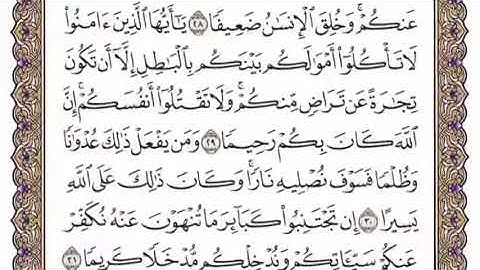 عَنكُمْ ۚ وَخُلِقَ ٱلْإِنسَـٰنُ ضَعِيفًا ٢٨ يَـٰٓأَيُّهَا ٱلَّذِينَ ءَامَنُوا۟
لَا تَأْكُلُوٓا۟ أَمْوَٰلَكُم بَيْنَكُم بِٱلْبَـٰطِلِ إِلَّآ أَن تَكُونَ
تِجَـٰرَةً عَن تَرَاضٍ مِّنكُمْ ۚ وَلَا تَقْتُلُوٓا۟ أَنفُسَكُمْ ۚ إِنَّ
ٱللَّهَ كَانَ بِكُمْ رَحِيمًا ٢٩ وَمَن يَفْعَلْ ذَٰلِكَ عُدْوَٰنًا
وَظُلْمًا فَسَوْفَ نُصْلِيهِ نَارًا ۚ وَكَانَ ذَٰلِكَ عَلَى ٱللَّهِ
يَسِيرًا ٣٠ إِن تَجْتَنِبُوا۟ كَبَآئِرَ مَا تُنْهَوْنَ عَنْهُ نُكَفِّرْ
عَنكُمْ سَيِّـَٔاتِكُمْ وَنُدْخِلْكُم مُّدْخَلًا كَرِيمًا ٣١